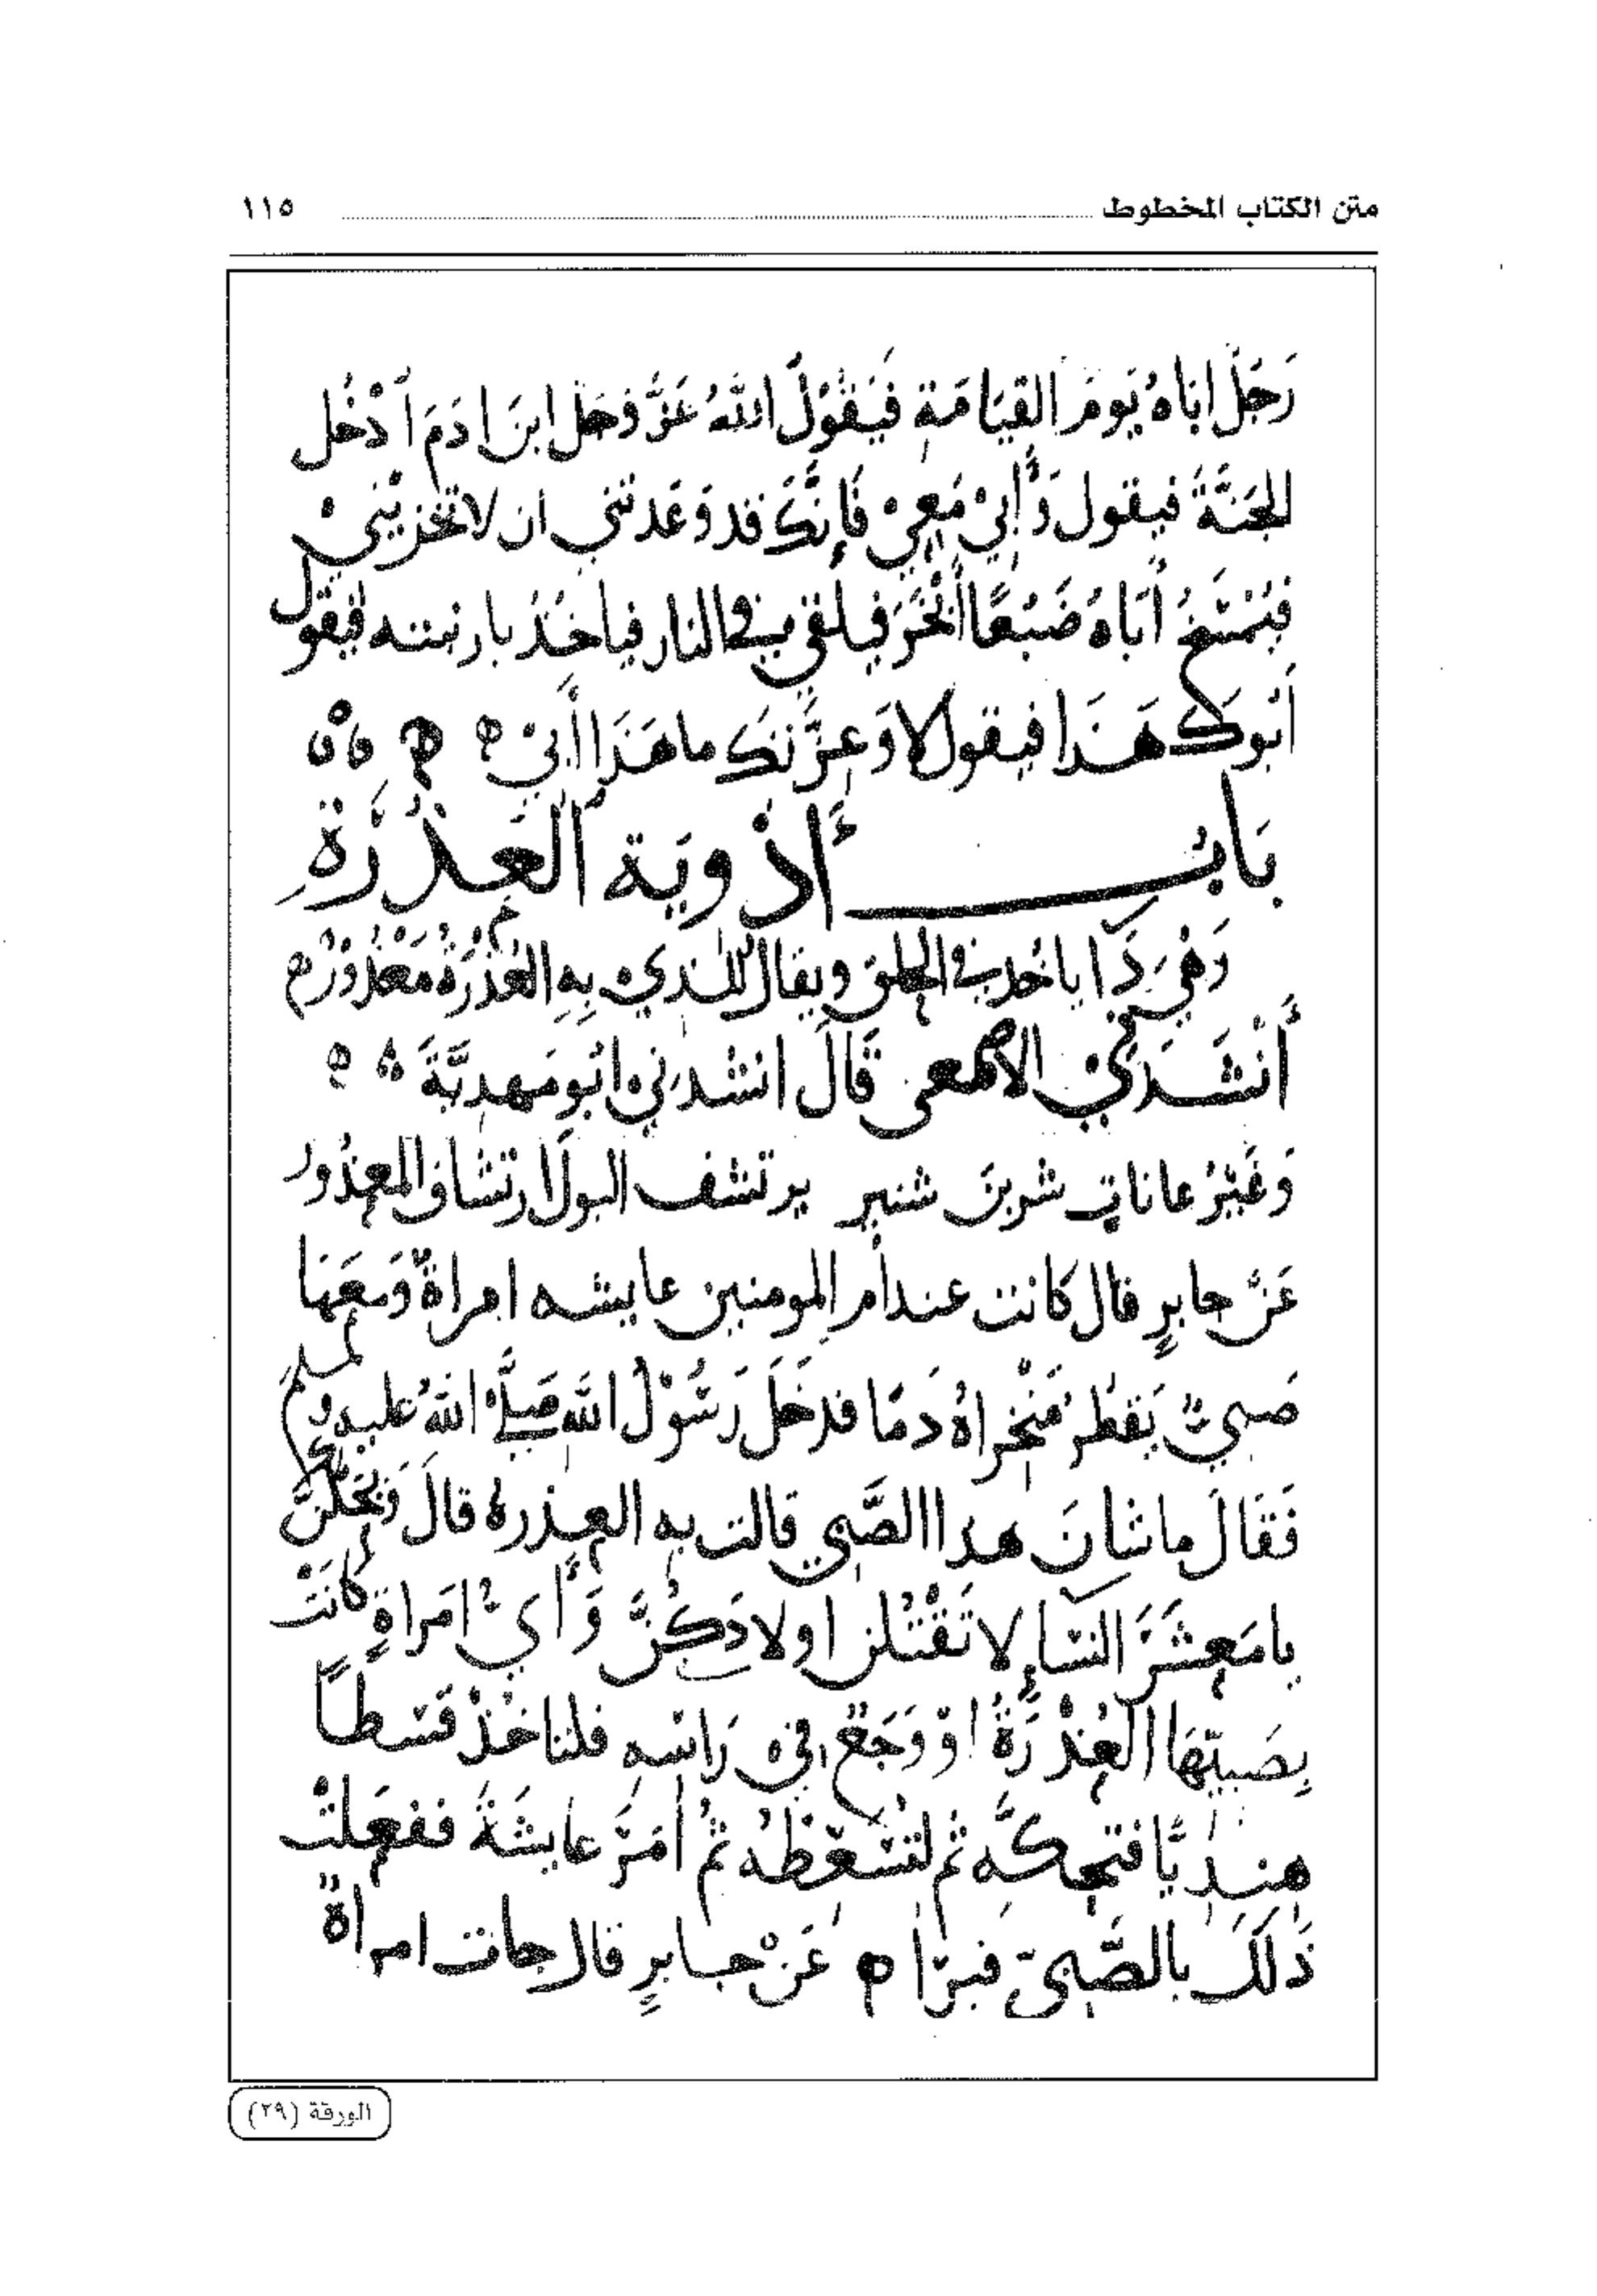 متن الكتاب المخطوط ١١٥
رَجُلٌ اباهُ يَومَ القيَامَةِ فَيَقُوْلُ اللهُ عَزَّ وَجَل ابنَ ادَمَ اُدْخُل
الجَنَّةَ فيقول وَأَبيْ مَعِيْ فَإِنَّكَ قد وَعَدتني ان لا تخزيْنيْ
فيُمْسَخُ أَبَاهُ ضَبُعًا أَمْجَرَ فيلقى في النار فياخُذُ بارنبته فيقول
أَبُوكَ هَذَا فيقول لا وَعِزَّتكَ ما هَذَا أَبيْ ه
بَابُ أدْوِيَة العُذْرَةِ
وَهْيَ دَا ياخذ في الحلق ويقال للذيْ بِهِ العُذْرَةُ مَعْذُوْرٌ ه
أَنْشَدَنيْ الاصمعي قَالَ انشدني ابُو مَهديَّةَ ه
وَغَيْرُ عاناتٍ شربنَ شنير يرتشف البولَ ارتشاف المعذُور
عَنْ جابرٍ قال كانت عند أم المومنين عايشه امراةٌ وَمَعَهَا
صَبيٌّ يَقطُر مَنْخراهُ دَمًا فدخَلَ رَسُوْلُ الله صَلَّى اللهُ عليه وسلم
فَقَالَ ما شانَ هذا الصَّبي قالت به العذرة قالَ وَيْحَكُنَّ
يا مَعشَرَ النسَاءِ لا تَقْتُلن اولادَكُنَّ وَأَيُّ امَراةٍ كانَتْ
بِصَبيّهَا العُذْرَةُ اوْ وَجَعٌ فيْ رَاسِهِ فلتاخُذْ قُسْطًا
هِندِيًّا فتحكَّه ثم لتسْعِطْهُ ثُمَّ أمَرَ عايشَةَ ففعَلتْ
ذَلكَ بالصَّبيّ فبرَا ه عَنْ جابرٍ قال جات امراةٌ
الورقة (٢٩)